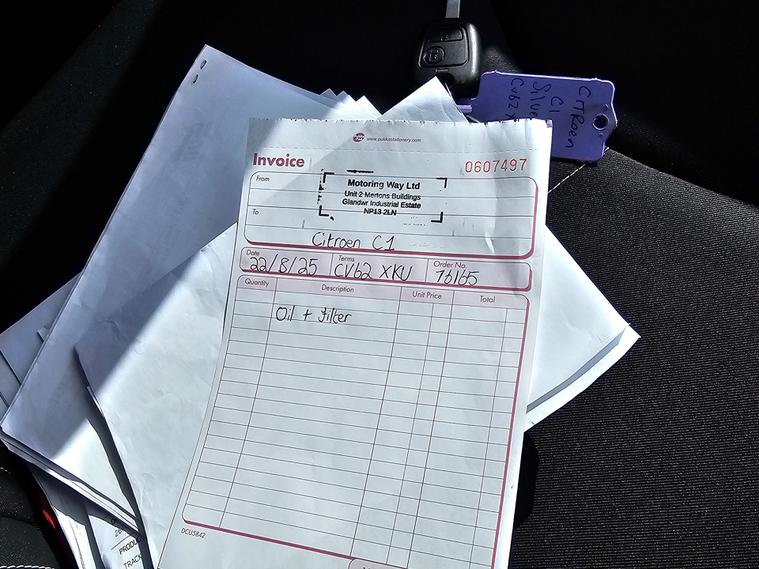 CITROEN
C1
Silve
CV62 X
www.pukkastationery.com
Invoice
0607497
From
Motoring Way Ltd
Unit 2 Mertons Buildings
Glandwr Industrial Estate
NP13 2LN
To
Citroen C1
Date Terms Order No.
22/8/25 CV62 XKU 76165
Quantity Description Unit Price Total
Oil + filter
DCU5842
PRODU
TRACK